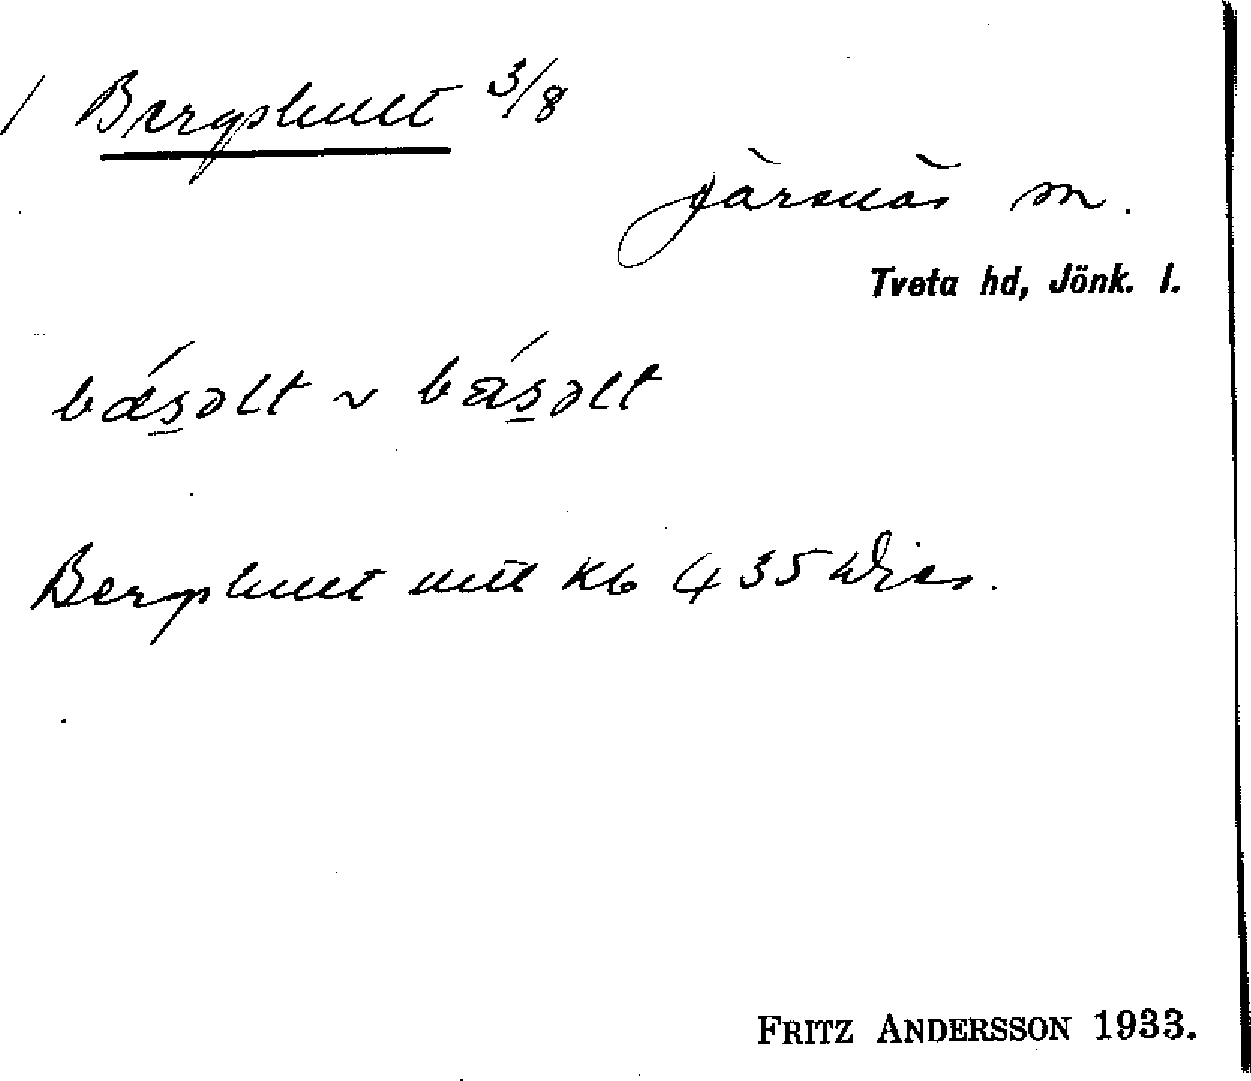 / Bergshult 3/8
Järsnäs sn.
Tveta hd, Jönk. l.
bǽs̱əlt ~ bǽs̱əlt
Bergshult utt kb 435 Dics.
FRITZ ANDERSSON 1933.